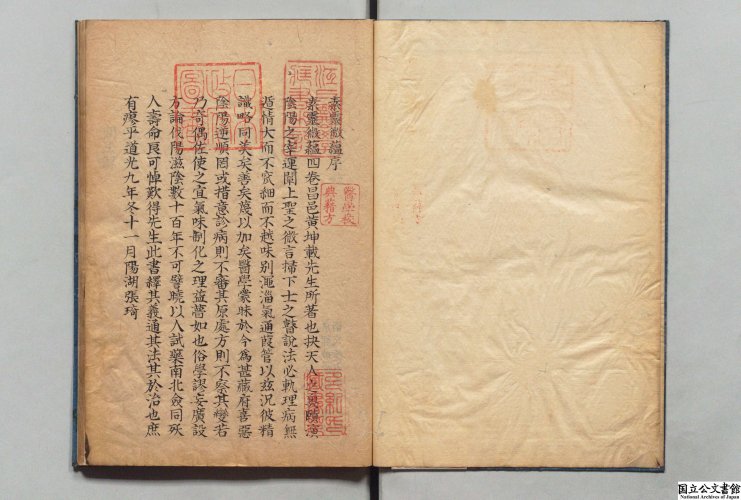 素靈微蘊序
素靈微蘊四卷昌邑黃坤載先生所著也抉天人之奧賾演
陰陽之宰運闡上聖之微言掃下士之瞽說法必軌理病無
遁情大而不窕細而不越味別澠淄氣通葭管以兹況彼精
識略同美矣善矣蔑以加矣醫學蒙昧於今為甚藏府喜惡
陰陽逆順罔或措意診病則不審其原處方則不察其變若
乃奇偶佐使之宜氣味制化之理茲瞢如也俗學謬妄廣設
方論伐陽滋陰數十百年不可譬曉以人試藥南北僉同殀
人壽命良可悼歎得先生此書繹其義通其法其於治也庶
有瘳乎道光九年冬十一月陽湖張琦
醫學校
典藉方
国立公文書館
National Archives of Japan